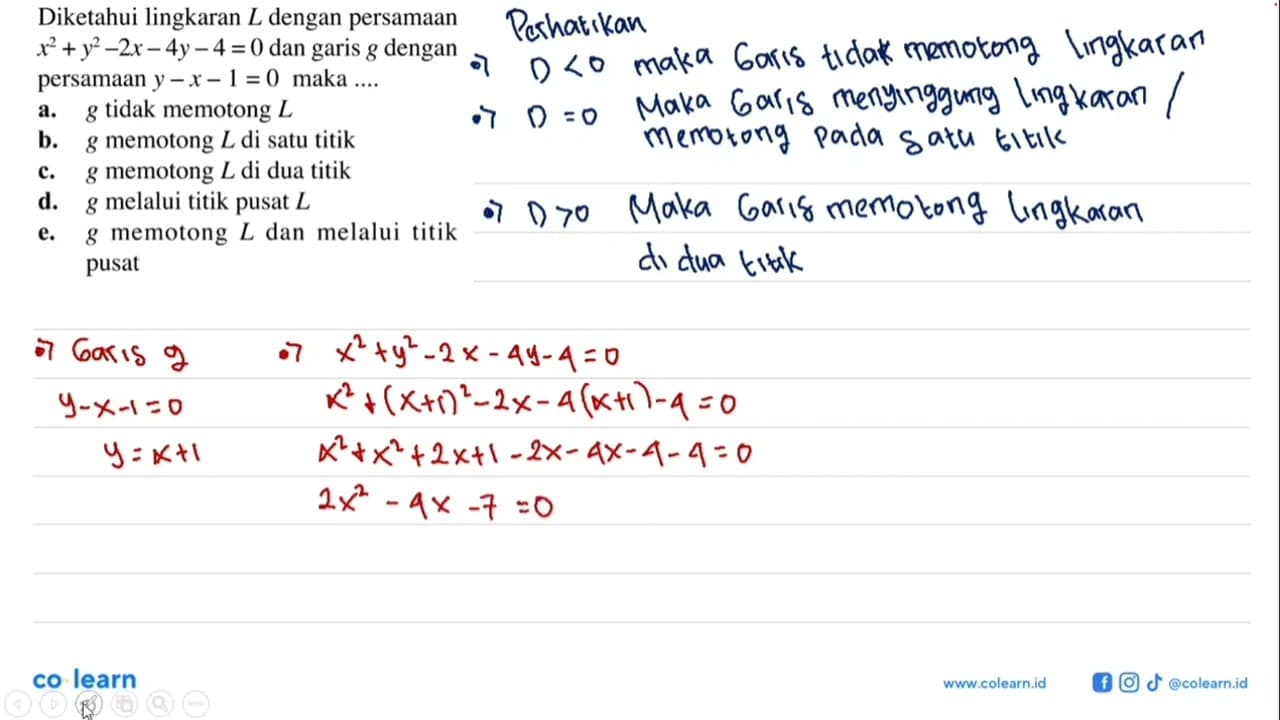 Diketahui lingkaran L dengan persamaan
x² + y² –2x – 4y – 4 = 0 dan garis g dengan
persamaan y – x – 1 = 0 maka ....
a. g tidak memotong L
b. g memotong L di satu titik
c. g memotong L di dua titik
d. g melalui titik pusat L
e. g memotong L dan melalui titik
pusat
Perhatikan
D < 0 maka Garis tidak memotong lingkaran
D = 0 Maka Garis menyinggung lingkaran /
memotong pada satu titik
D > 0 Maka Garis memotong lingkaran
di dua titik
Garis g
y - x - 1 = 0
y = x + 1
x² + y² - 2x - 4y - 4 = 0
x² + (x+1)² - 2x - 4(x+1) - 4 = 0
x² + x² + 2x + 1 - 2x - 4x - 4 - 4 = 0
2x² - 4x - 7 = 0
co learn
www.colearn.id
@colearn.id